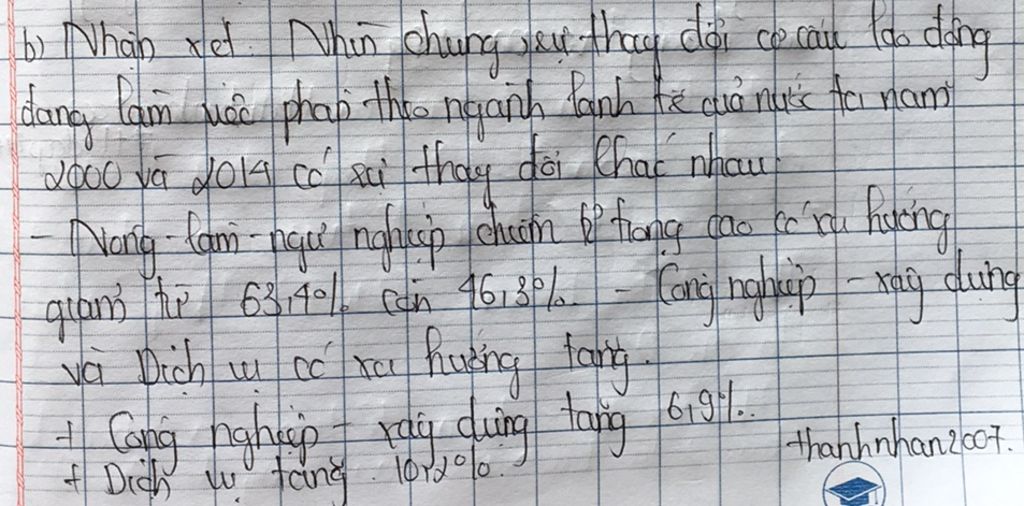 b) Nhận xét. Nhìn chung, sự thay đổi cơ cấu lao động
đang làm việc phân theo ngành kinh tế của nước ta năm
2000 và 2014 có sự thay đổi khác nhau.
- Nông - lâm - ngư nghiệp chiếm tỉ trọng cao có xu hướng
giảm từ 63,4% còn 46,3%. - Công nghiệp - xây dựng
và Dịch vụ có xu hướng tăng.
+ Công nghiệp - xây dựng tăng 6,9%.
+ Dịch vụ tăng 10,2%.
thanhnhan2007.